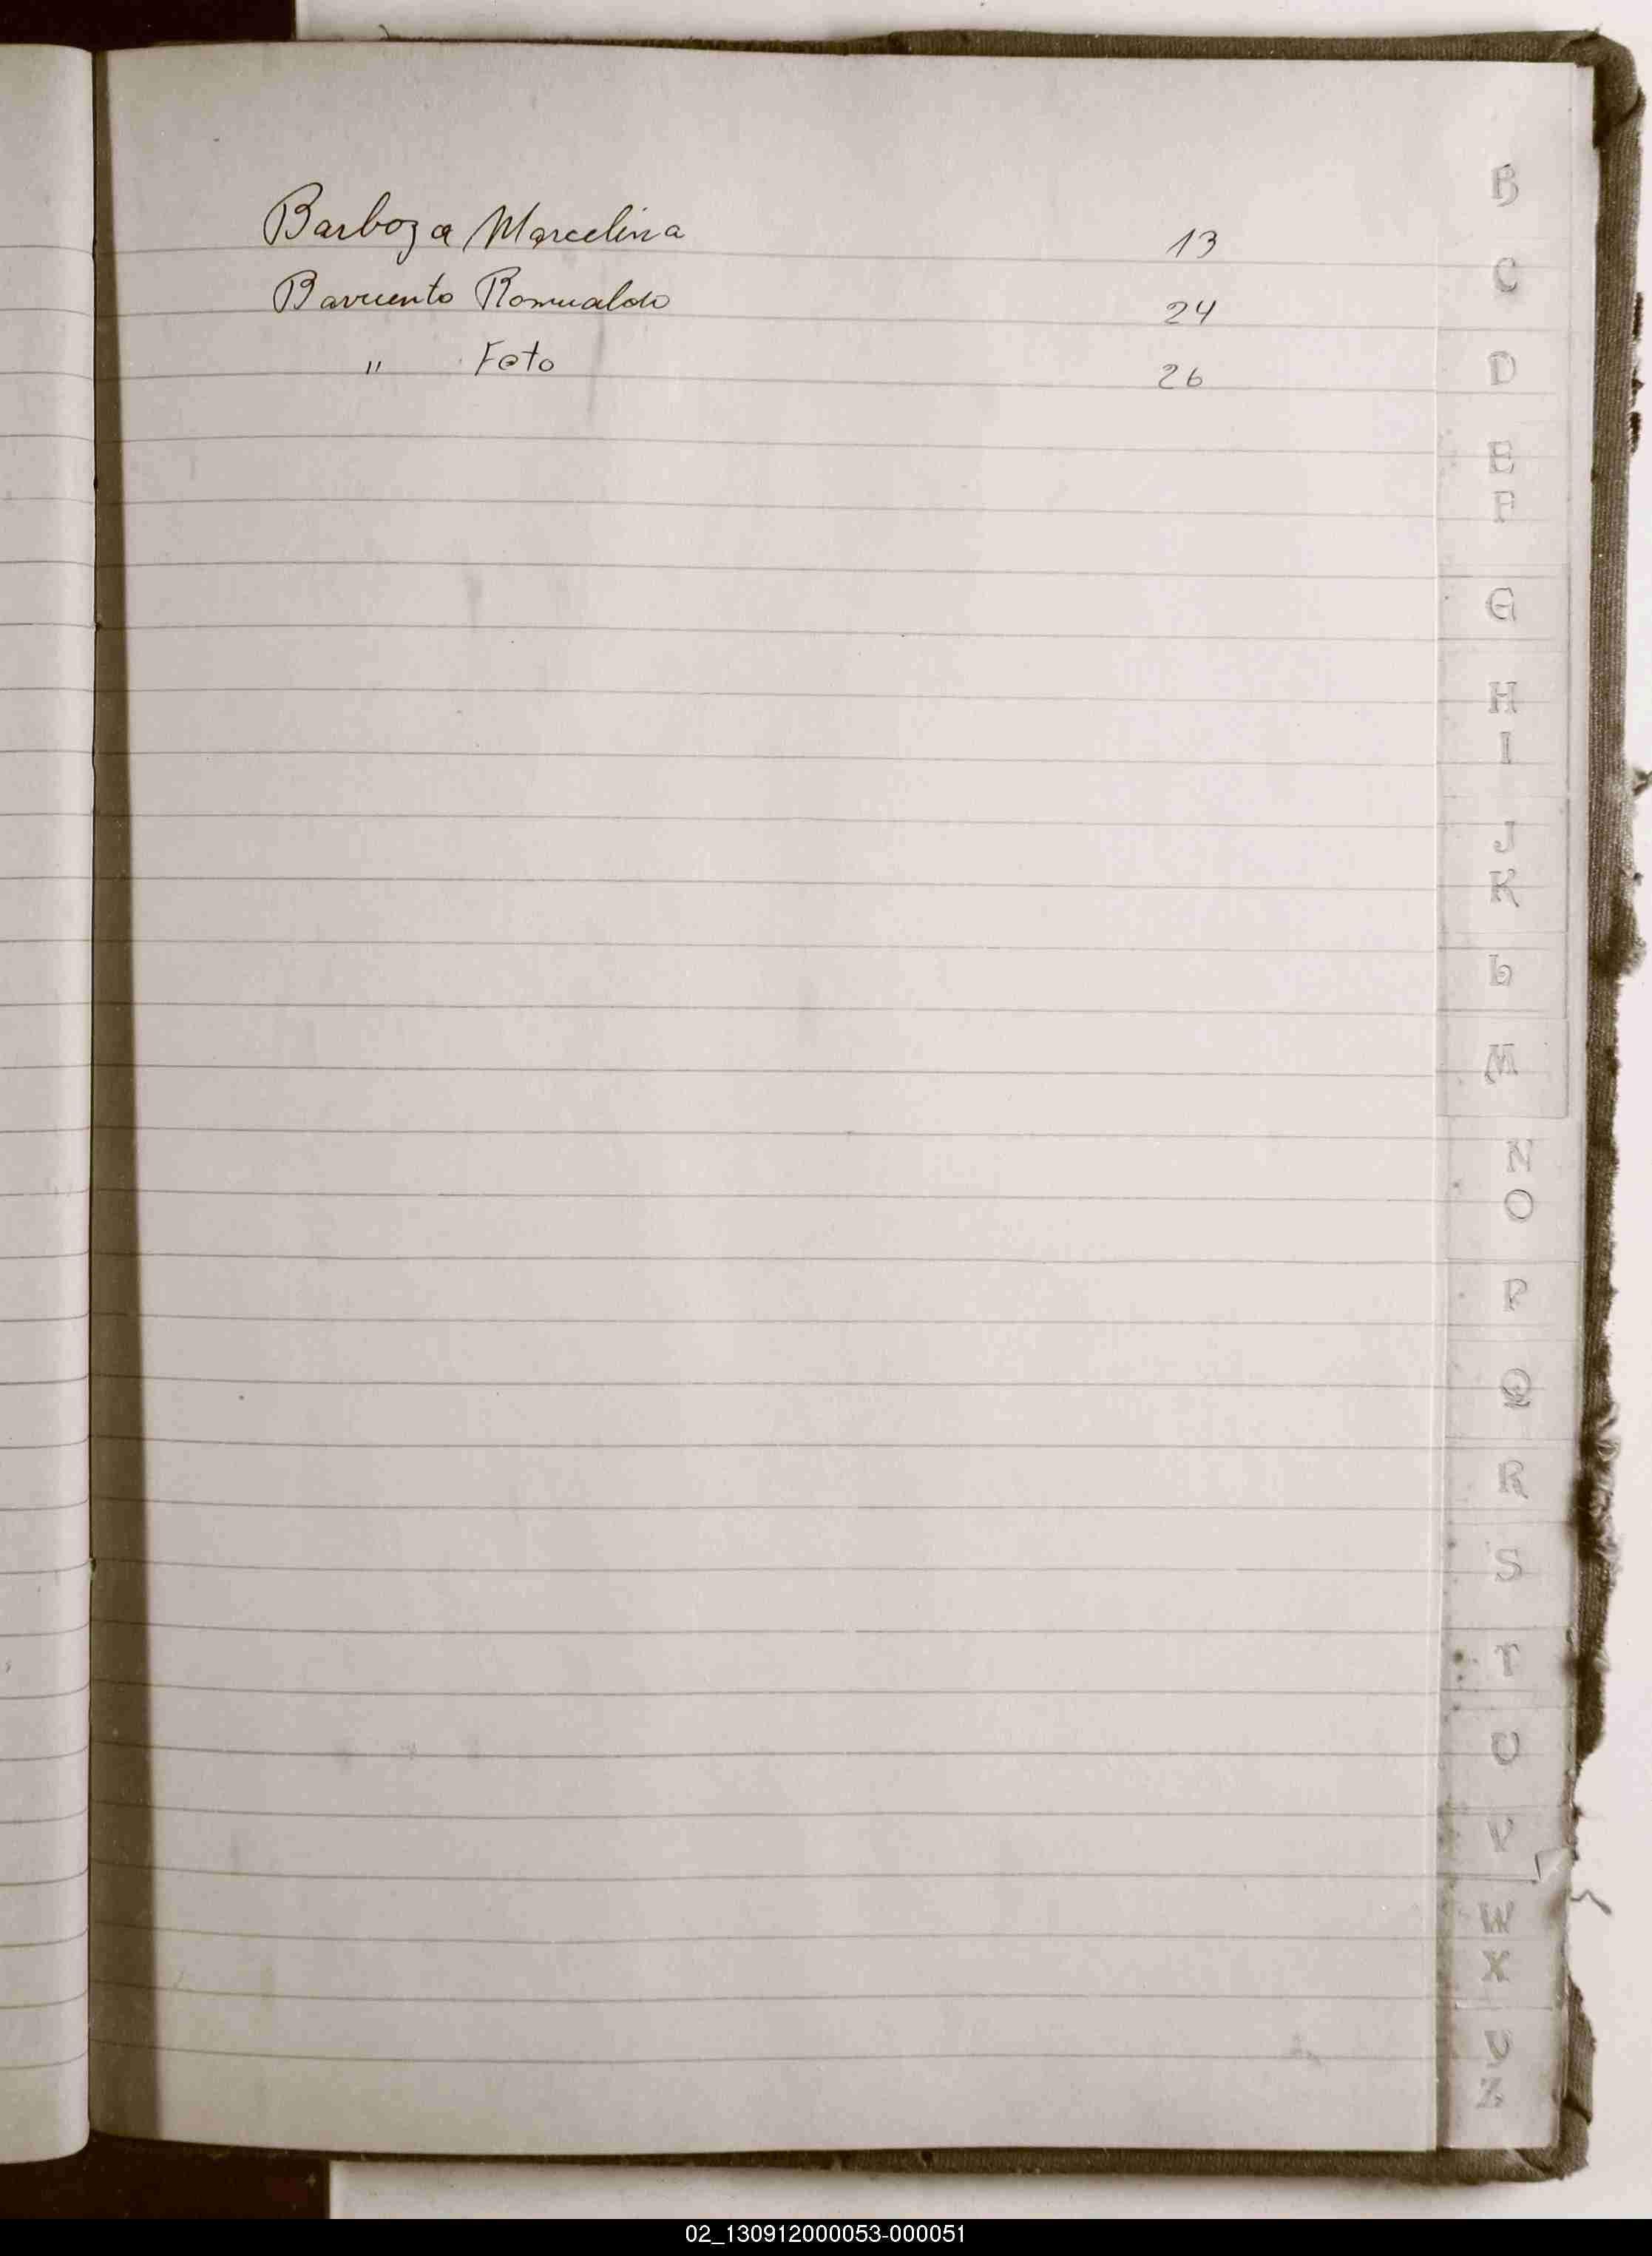 Barboza Marcelina 13
Barruento Romualdo 24
" Feto 26
B
C
D
E
F
G
H
I
J
K
L
M
N
O
P
Q
R
S
T
U
V
W
X
Y
Z
02_130912000053-000051